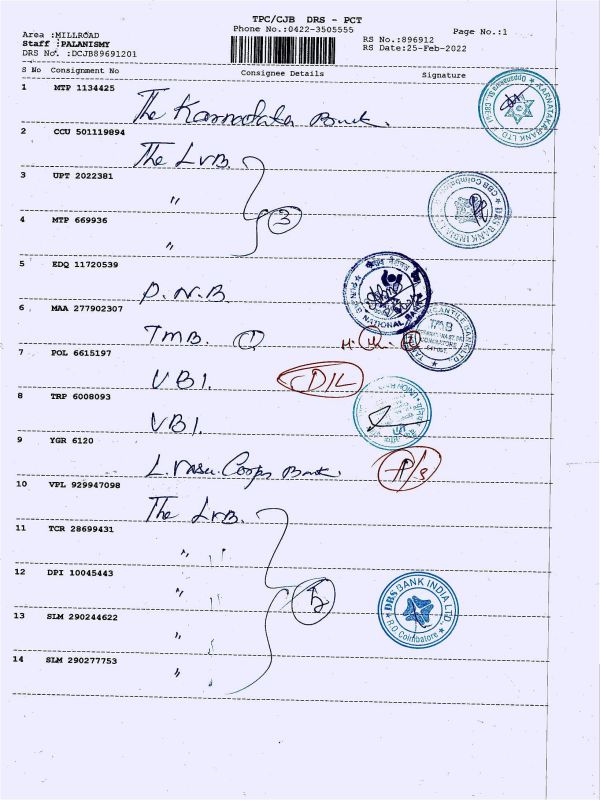 TPC/CJB DRS - PCT
Phone No.:0422-3505555
Page No.:1
Area :MILLROAD
Staff :PALANISMY
DRS No. :DCJB89691201
RS No.:896912
RS Date:25-Feb-2022
S No Consignment No Consignee Details Signature
1 MTP 1134425
The Karnataka Bank.
2 CCU 501119894
The LVB.
3 UPT 2022381
"
3
4 MTP 669936
"
5 EDQ 11720539
P.N.B
6 MAA 277902307
TMB. 1
7 POL 6615197
UBI. CDIL
8 TRP 6008093
UBI.
9 YGR 6120
Bank. P/s
10 VPL 929947098
The LVB.
11 TCR 28699431
"
12 DPI 10045443
"
5
13 SLM 290244622
"
14 SLM 290277753
"
KARNATAKA BANK LTD
DBS BANK INDIA LTD
CBB Coimbatore
NATIONAL BANK
TMB
MERCANTILE BANK LTD.
DBS BANK INDIA LTD.
R.O Coimbatore